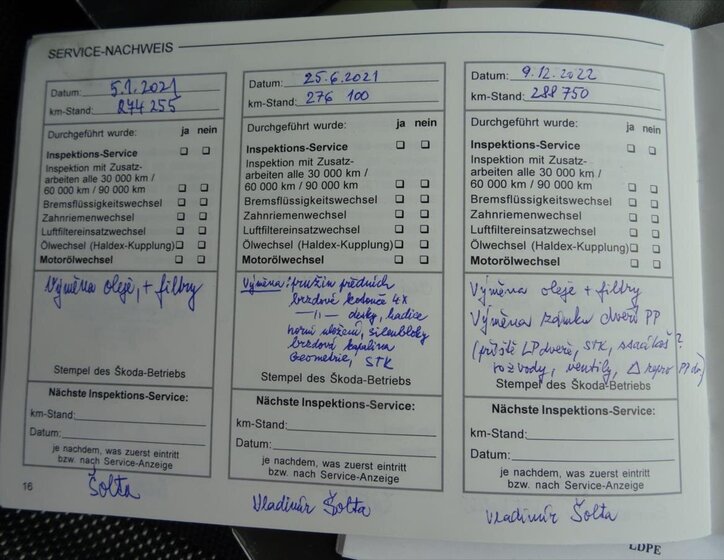 SERVICE-NACHWEIS
Datum: 5.1.2021
km-Stand: 274 255
Durchgeführt wurde: ja nein
Inspektions-Service
Inspektion mit Zusatz-
arbeiten alle 30 000 km /
60 000 km / 90 000 km
Bremsflüssigkeitswechsel
Zahnriemenwechsel
Luftfiltereinsatzwechsel
Ölwechsel (Haldex-Kupplung)
Motorölwechsel
Výměna oleje, + filtry
Stempel des Škoda-Betriebs
Nächste Inspektions-Service:
km-Stand:
Datum:
je nachdem, was zuerst eintritt
bzw. nach Service-Anzeige
16
Šolta
Datum: 25.6.2021
km-Stand: 276 100
Durchgeführt wurde: ja nein
Inspektions-Service
Inspektion mit Zusatz-
arbeiten alle 30 000 km /
60 000 km / 90 000 km
Bremsflüssigkeitswechsel
Zahnriemenwechsel
Luftfiltereinsatzwechsel
Ölwechsel (Haldex-Kupplung)
Motorölwechsel
Výměna: pružin předních
brzdové kotouče 4x
—11— desky, hadice
horní uložení, silenbloky
brzdová kapalina
Geometrie, STK
Stempel des Škoda-Betriebs
Nächste Inspektions-Service:
km-Stand:
Datum:
je nachdem, was zuerst eintritt
bzw. nach Service-Anzeige
Vladimír Šolta
Datum: 9.12.2022
km-Stand: 288 750
Durchgeführt wurde: ja nein
Inspektions-Service
Inspektion mit Zusatz-
arbeiten alle 30 000 km /
60 000 km / 90 000 km
Bremsflüssigkeitswechsel
Zahnriemenwechsel
Luftfiltereinsatzwechsel
Ölwechsel (Haldex-Kupplung)
Motorölwechsel
Výměna oleje + filtry
Výměna zámku dveří PP
(příště LP dveře, STK, ?
rozvody, ventily, Δ repro PP
Stempel des Škoda-Betriebs
Nächste Inspektions-Service:
km-Stand:
Datum:
je nachdem, was zuerst eintritt
bzw. nach Service-Anzeige
Vladimír Šolta
LDPE